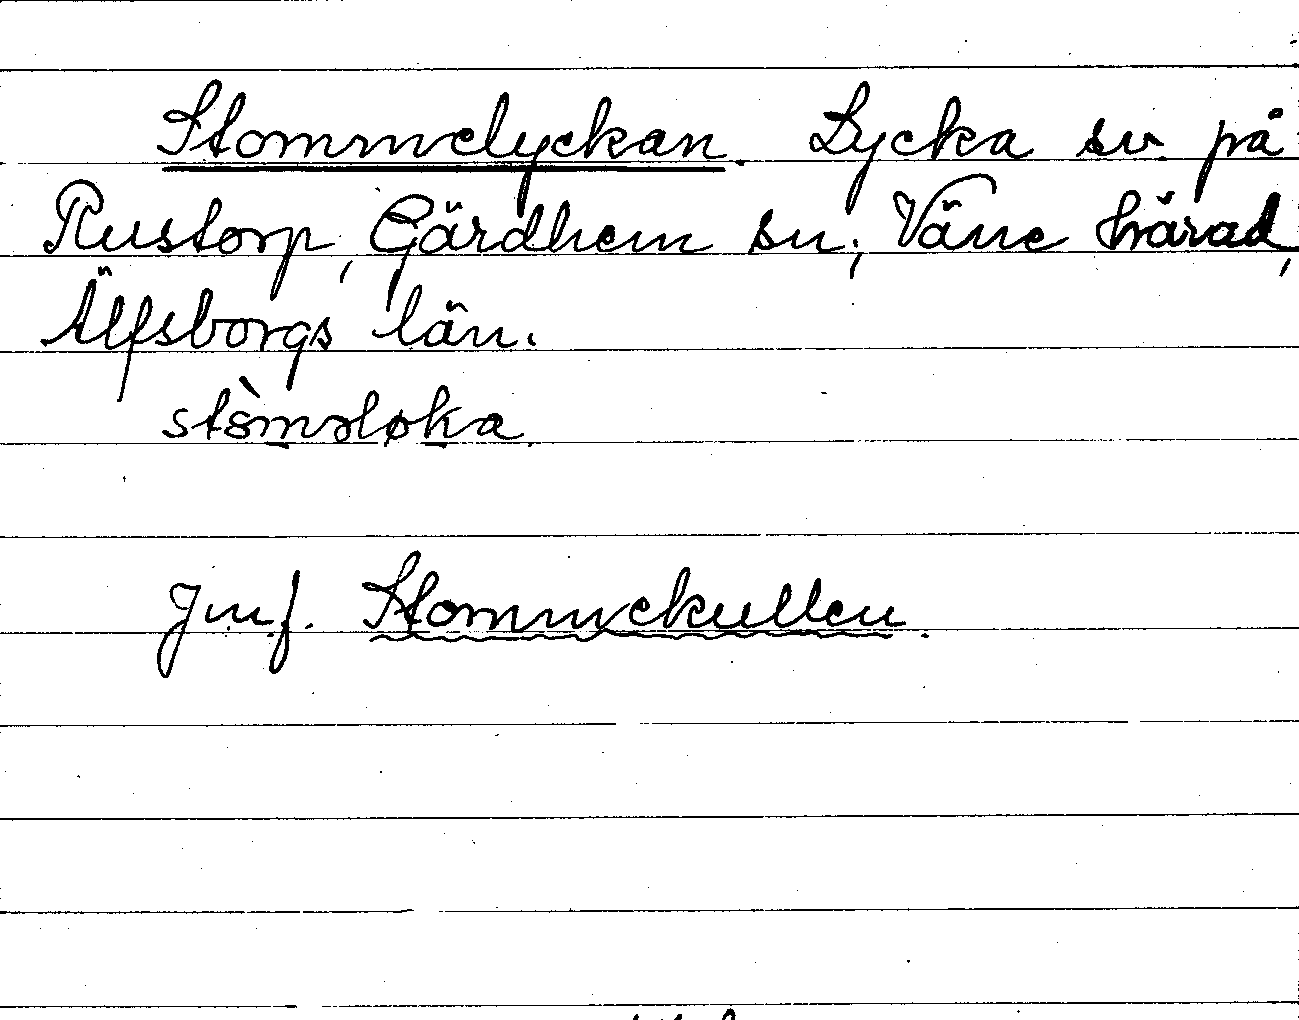 Stommelyckan. Lycka sv. på
Rustorp, Gärdhem sn; Väne härad,
Älfsborgs län.
stòmǝløka.
Jmf. Stommekullen.